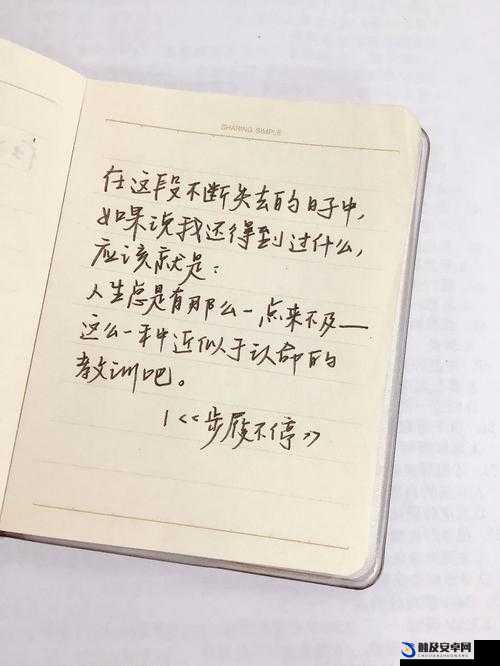 SHARING SIMPLE
在这段不断失去的日子中，
如果说我还得到过什么，
应该就是：
人生总是有那么一点来不及—
这么一种近似于认命的
教训吧。
|《步履不停》
触及安卓网